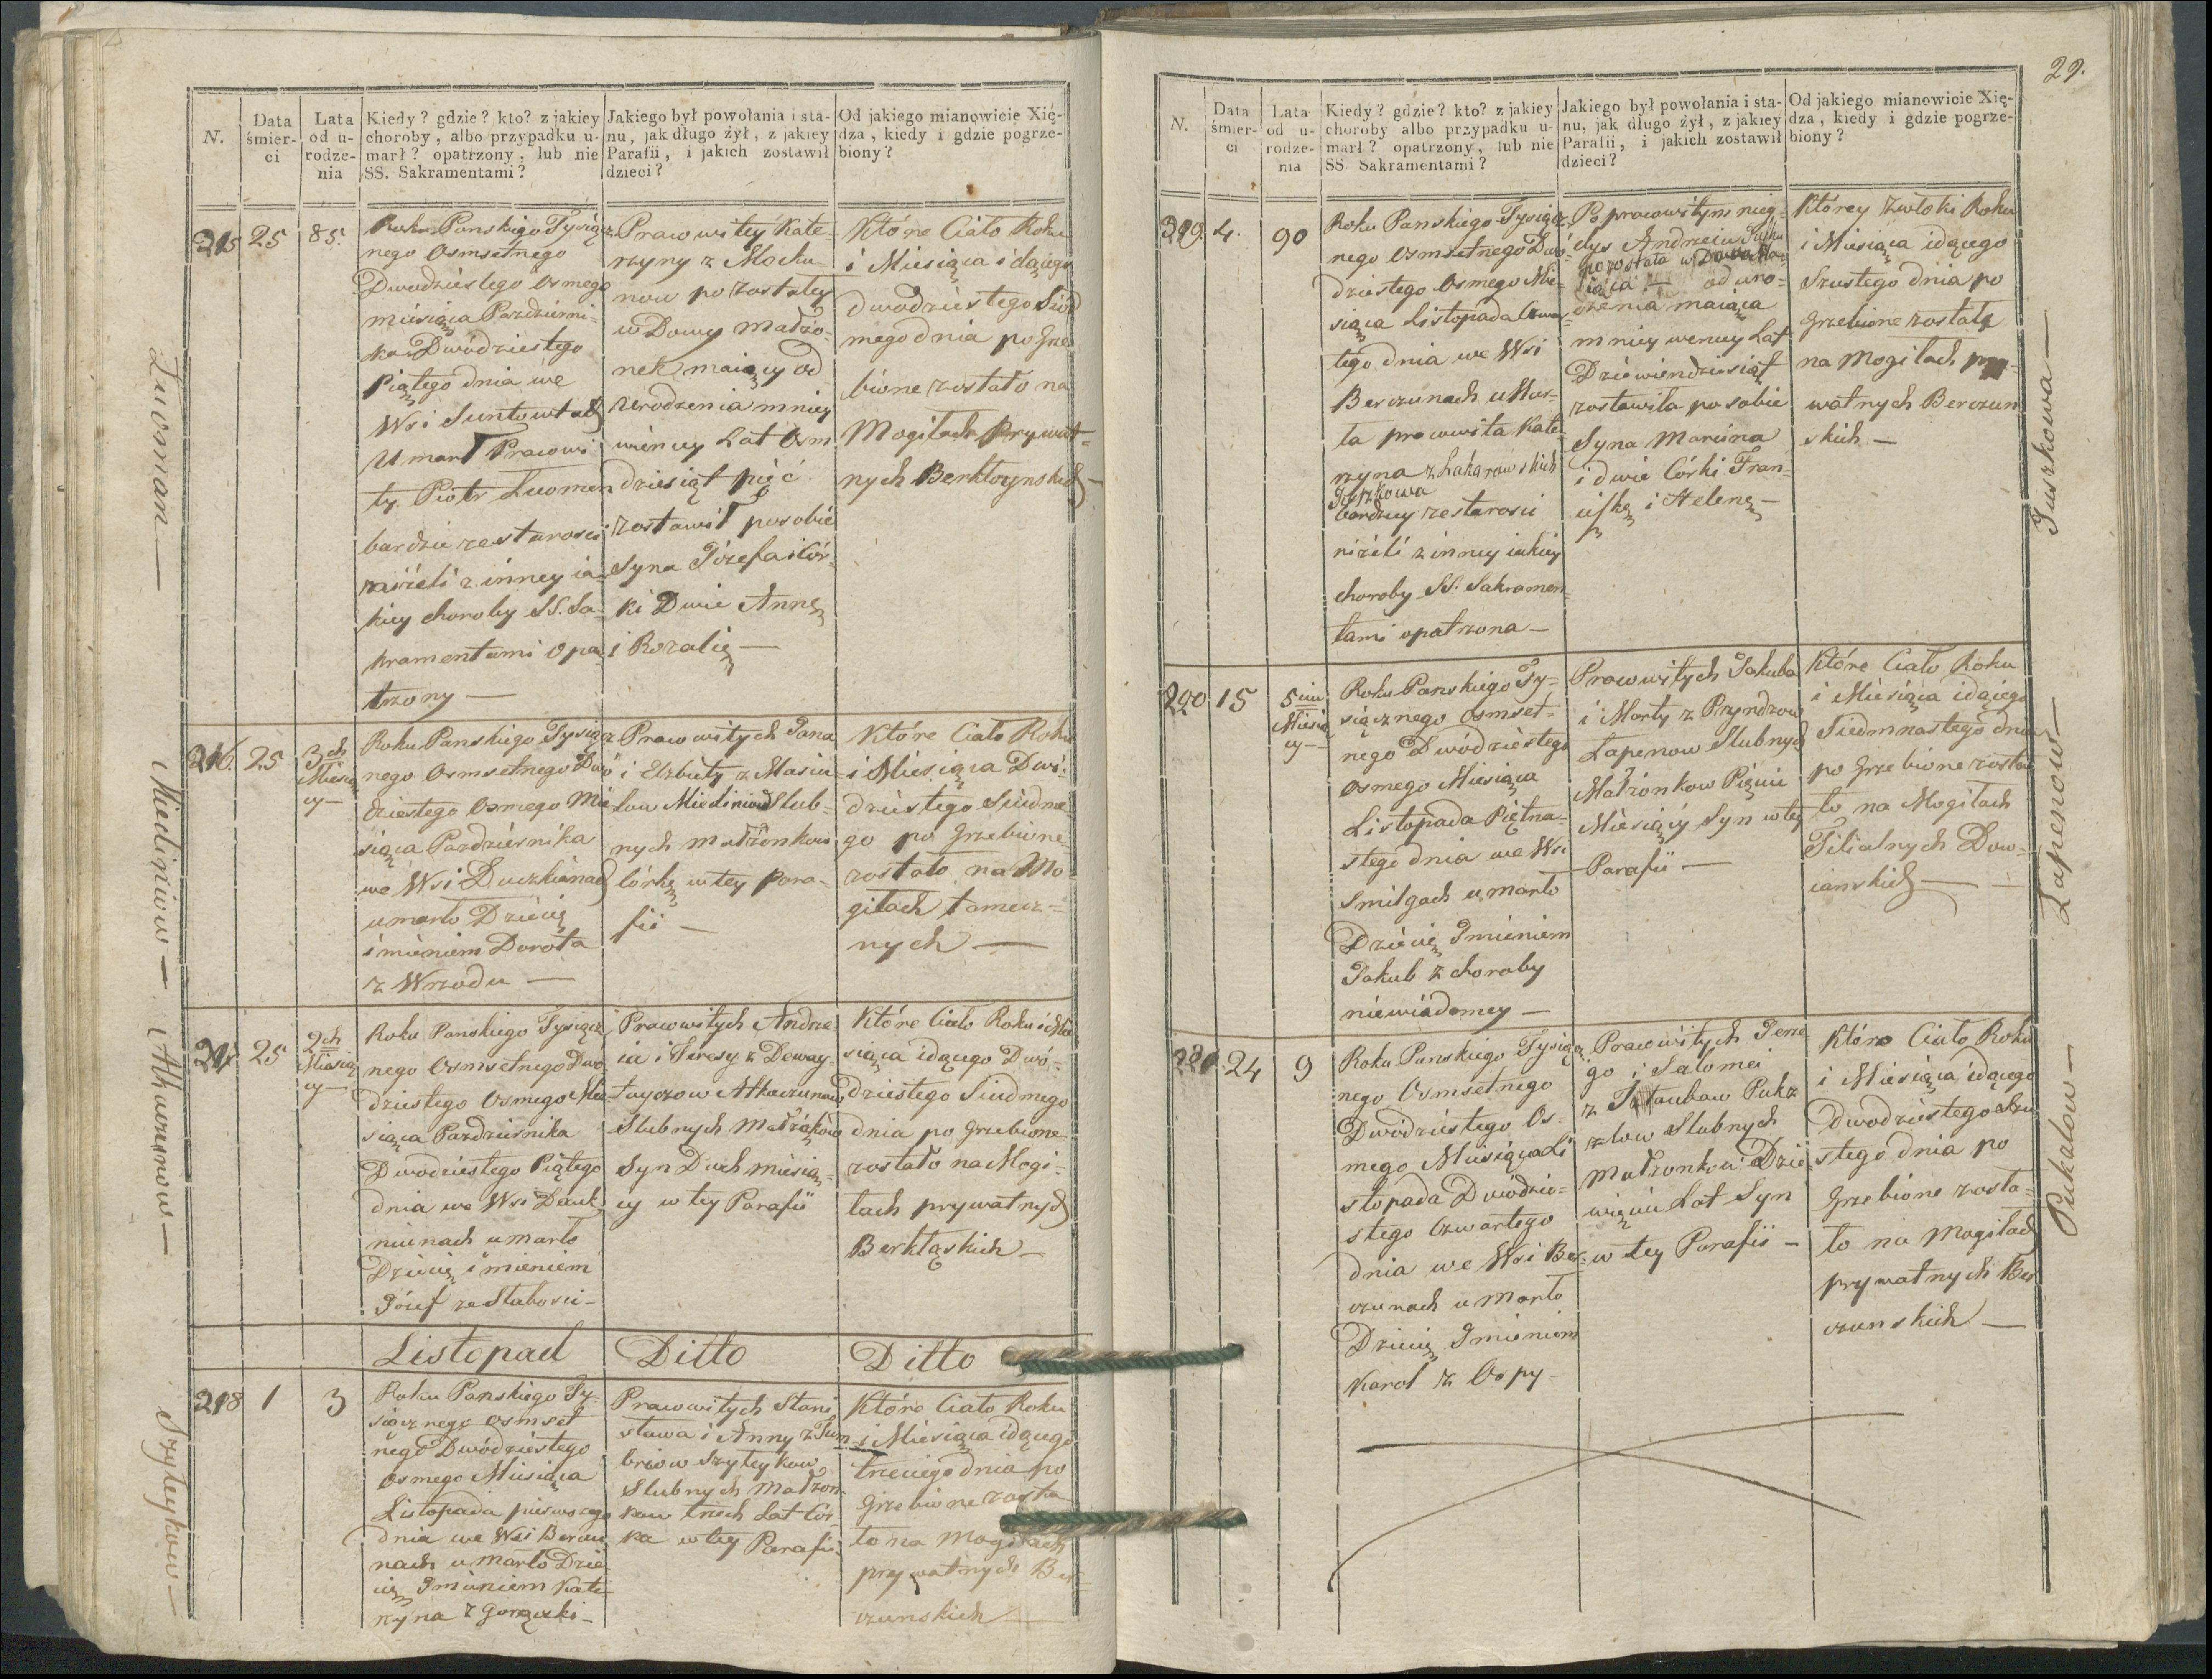 N.
Data śmier-ci
Lata od u-rodze-nia
Kiedy? gdzie? kto? z jakiey
choroby, albo przypadku u-
marł? opatrzony, lub nie
SS. Sakramentami?
Jakiego był powołania i sta-
nu, jak długo żył, z jakiey
Parafii, i jakich zostawił
dzieci?
Od jakiego mianowicie Xię-
dza, kiedy i gdzie pogrze-
biony?
Luoman —
215
25
85.
Roku Panskiego Tysiącz
nego Osmsetnego
Dwudziestego Osmego
miesiąca Pazdzierni-
ka Dwódziestego
Piątego dnia we
Wsi Suntowtach
Umarł Pracowi
ty Piotr Luomen
bardzie ze starosci
niżeli z inney ia-
kiey choroby SS. Sa-
kramentami opa-
trzony —
Pracowitey Kate-
rzyny z Mocku
now pozostałey
w Domy małżo-
nek maiący od
Urodzenia mniey
wiencey Lat Osm
dziesiąt pięć
zostawił posobie
Syna Józefa i Cór-
ki Dwie Annę
i Rozalię —
Które Ciało Roku
i Miesiąca idącego
dwodziestego Siód
mego dnia po Grze
bione zostało na
Mogiłach Prywat-
nych Berkłoynskich —
Miediniow —
216.
25
3ch Miesię cy —
Roku Panskiego Tysiącz
nego Osmsetnego Dwó
dziestego Osmego Mie
siąca Pazdziernika
we Wsi Duczkianach
umarło Dziecię
imieniem Dorota
z Wrzodu —
Pracowitych Jana
i Elzbiety z Masiu
low Miediniow Slub-
nych małżonkow
Córkę w tey Para-
fii —
Które Ciało Roku
i Miesiąca Dwó-
dziestego Siudme-
go po Grzebione
zostało na Mo
giłach tamecz-
nych —
Atkoczunow —
217.
25
2ch Miesię cy —
Roku Panskiego Tysiącz
nego Osmsetnego Dwo
dziestego Osmego Mie
siąca Pazdziernika
Dwodziestego Piątego
dnia we Wsi Dauk
niunach umarło
Dziecię imieniem
Józef ze Słabosci —
Pracowitych Andrze
ia i Teresy z Deway
toyczow Atkoczunow
Slubnych Małżąków
Syn Dwch miesią-
cy w tey Parafii
Które Ciało Roku i Mie
siąca idącego Dwó-
dziestego Siudmego
dnia po Grzebione
zostało na Mogi-
łach prywatnych
Berkłąskich —
Listopad Ditto Ditto
Szyleykow —
218
1
3
Roku Panskiego Ty-
siącznego osmset
nego Dwódziestego
Osmego Miesiąca
Listopada pierwszego
dnia we Wsi Berczu
nach umarło Dzie
cię Imieniem Kate
rzyna z Gorączki —
Pracowitych Stani
sława i Anny z Jun
briow Szyleykow
Slubnych Małżon
kow trzech Lat Cór-
ka w tey Parafii
Które Ciało Roku
i Miesiąca idącego
trzeciego dnia po
Grzebione zosta
ło na Mogiłach
prywatnych Ber
czunskich —
29.
N.
Data śmier-ci
Lata od u-rodze-nia
Kiedy? gdzie? kto? z jakiey
choroby albo przypadku u-
marł? opatrzony, lub nie
SS. Sakramentami?
Jakiego był powołania i sta-
nu, jak długo żył, z jakiey
Parafii, i jakich zostawił
dzieci?
Od jakiego mianowicie Xię-
dza, kiedy i gdzie pogrze-
biony?
219.
4.
90
Roku Panskiego Tysiącz
nego Osmsetnego Dwó-
dziestego Osmego Mie-
siąca Listopada Czwar-
tego dnia we Wsi
Berczunach uMar-
ła pracowita Kate
rzyna z Łakarowskich
Juszkowa
bardziey ze starosci
niżeli z inney iakiey
choroby SS. Sakramen
tami opatrzona —
Po pracowitym nieg-
dys Andrzeiu Juszku
pozostała w Dowa
od uro-
dzenia maiąca
mniey wencey Lat
Dziewiendziesiąt
zostawiła po sobie
Syna Marcina
i dwie Córki Fran-
ciszkę i Helenę —
Którey Zwłoki Roku
i Miesiąca idącego
Szustego dnia po
Grzebione zostałą
na Mogiłach pry-
watnych Berczun
skich —
Juszkowa —
220
15
5ciu Miesię cy —
Roku Panskiego Ty-
siącznego Osmset-
nego Dwódziestego
Osmego Miesiąca
Listopada Piętna-
stego dnia we Wsi
Smilgach umarło
Dziecię Imieniem
Jakub z choroby
niewiadomey —
Pracowitych Jakuba
i Marty z Pryndzow
Łapenow Slubnych
Małżonkow Pięciu
Miesięcy Syn w tey
Parafii —
Które Ciało Roku
i Miesiąca idącego
Siedmnastego dnia
po Grzebione zosta
ło na Mogiłach
Filialnych Dow-
ianskich —
Łapenow —
221
24
9
Roku Panskiego Tysiącz
nego Osmsetnego
Dwódziestego Os-
mego Miesiąca Li
stopada Dwódzie-
stego Czwartego
dnia we Wsi Ber-
czunach umarło
Dziecię Imieniem
Karol z Ospy —
Pracowitych Jerze
go i Salomei
z Staubow Puka
low Slubnych
Małżonkow Dzie
więciu Lat Syn
w tey Parafii —
Które Ciało Roku
i Miesiąca idącego
Dwodziestego Szu
stego dnia po
Grzebione zosta-
ło na Mogiłach
prywatnych Ber
czunskich —
Pukalow —